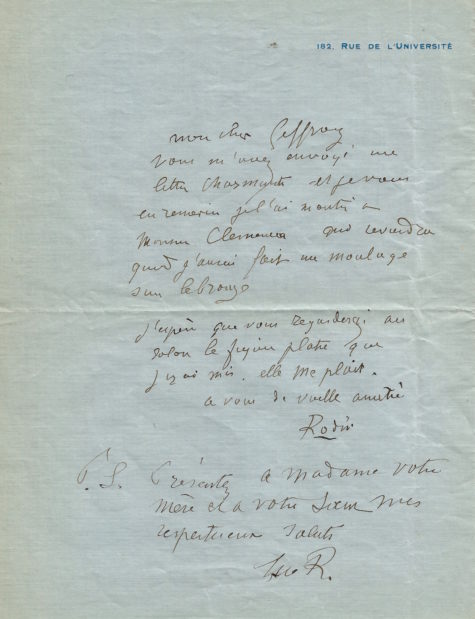 182, RUE DE L'UNIVERSITÉ
mon cher Geffroy
vous m'avez envoyé une
lettre charmante et je vous
en remercie je l'ai montré a
Monsieur Clemenceau qui reviendra
quand j'aurai fait un moulage
sur le bronze
j'espère que vous regarderez au
salon le figure platre que
j'y ai mis. elle me plait.
a vous de vieille amitié
Rodin
P. S. Présentez a madame votre
mère et a votre Sœur mes
respectueux saluts
R.